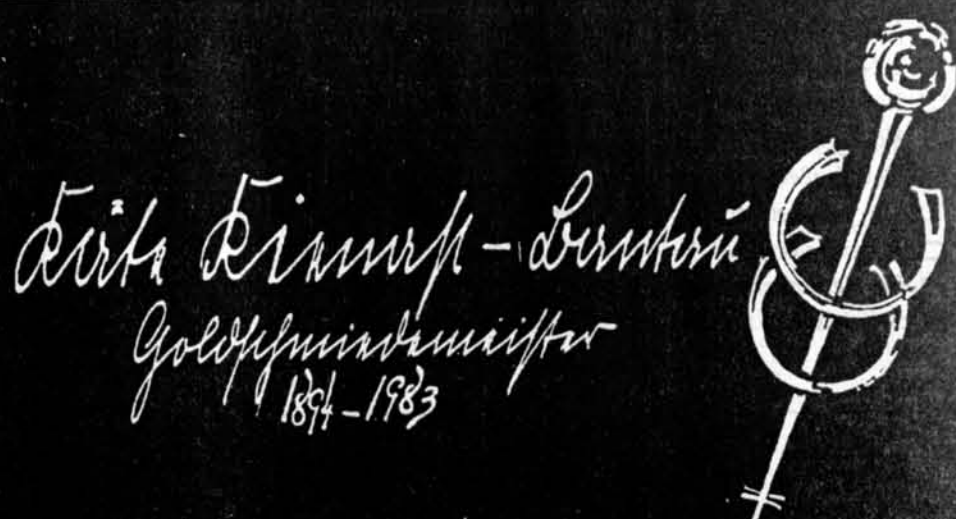 Käte Kienast - Bantau
Goldschmiedemeister
1894 - 1983